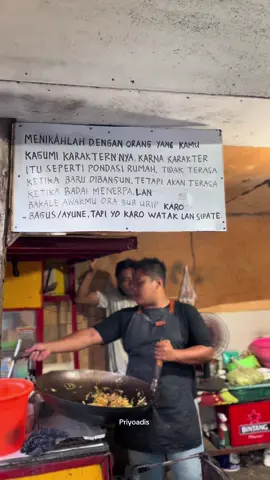 MENIKAHLAH DENGAN ORANG YANG KAMU
KAGUMI KARAKTERN NYA. KARNA KARAKTER
ITU SEPERTI PONDASI RUMAH, TIDAK TERASA
KETIKA BARU DIBANGUN, TETAPI AKAN TERASA
KETIKA BADAI MENERPA. LAN
BAKALE AWAKMU ORA SUB URIP KARO
- BAGUS/AYUNE, TAPI YO KARO WATAK LAN SIPATE.
BINTANG
Priyoadis